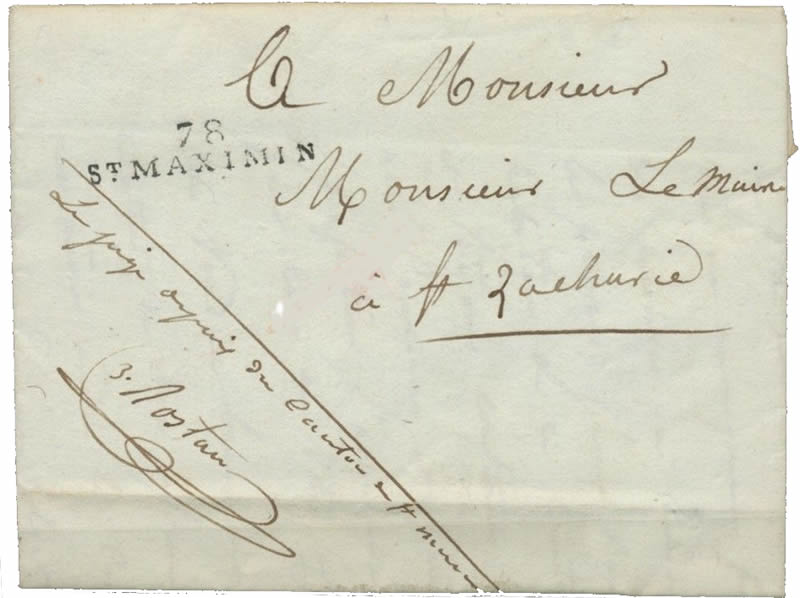 A Monsieur
78
ST MAXIMIN
Monsieur Le Maire
à St Zacharie
Le juge du Canton de St
Rostan